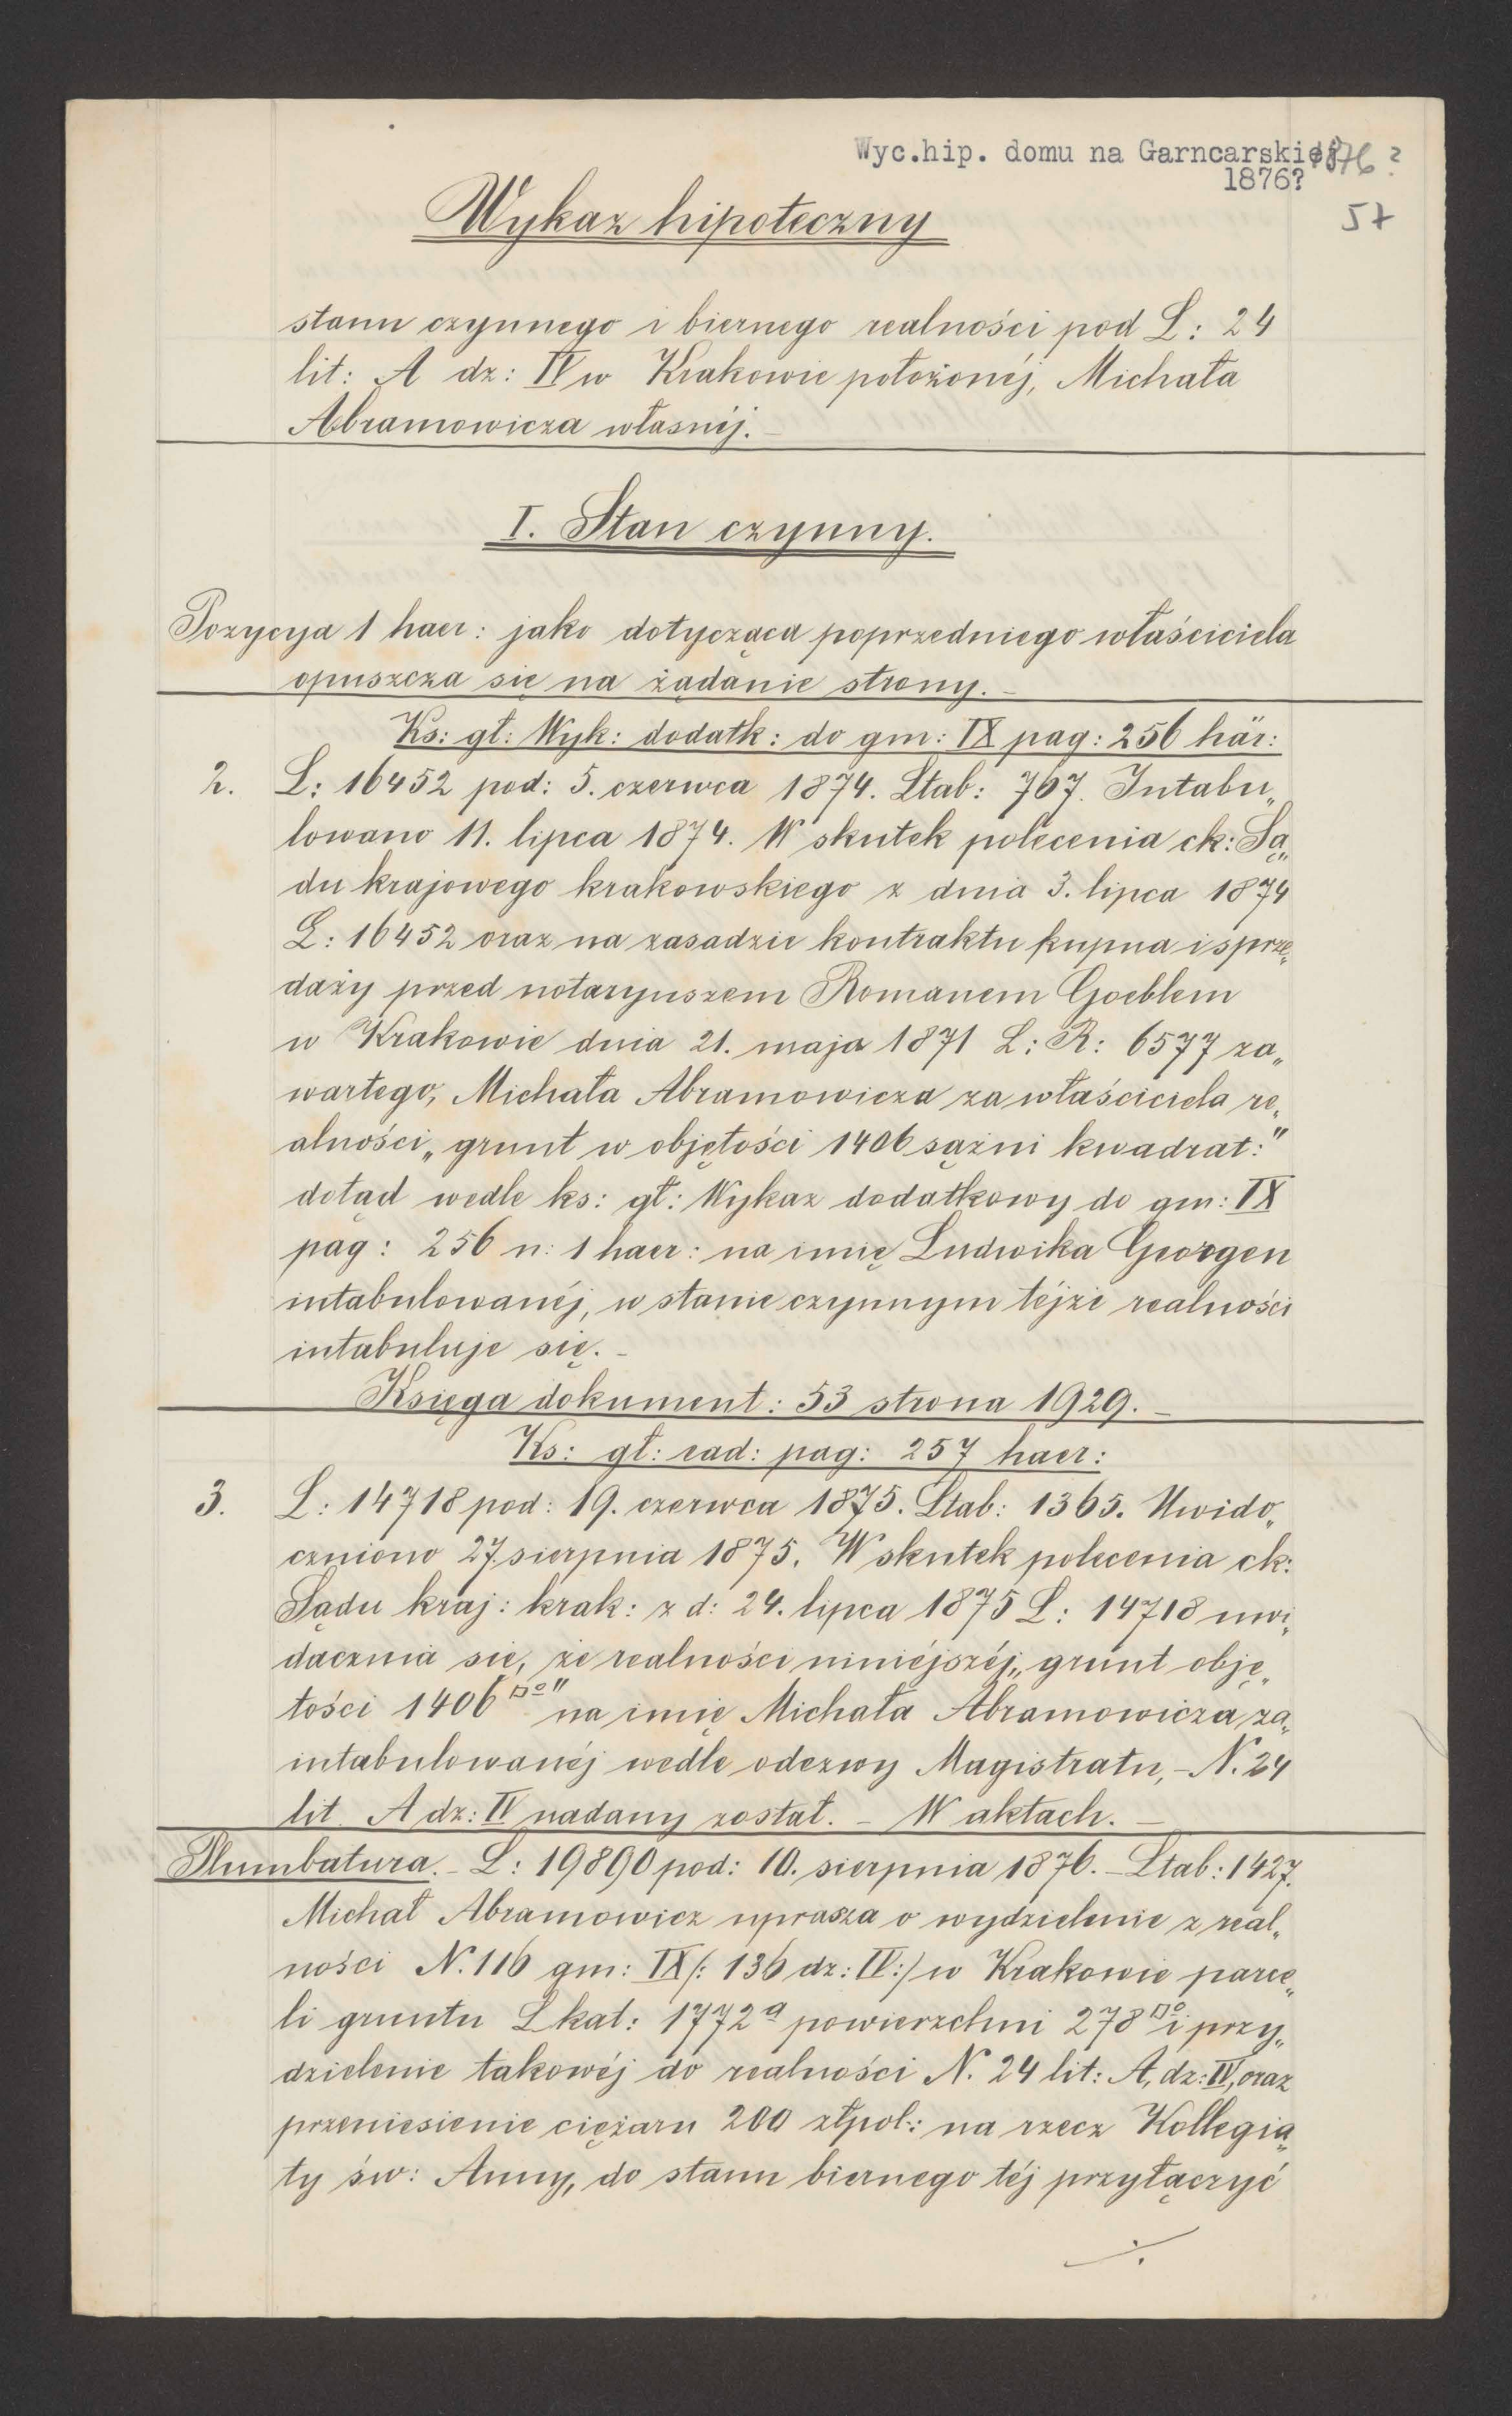 Wyc.hip. domu na Garncarskiej 1876?
1876?
57
Wykaz hipoteczny
stanu czynnego i biernego realności pod L: 24
lit: A dz: IV w Krakowie położonéj, Michała
Abramowicza własnéj.
I. Stan czynny.
Pozycya 1 haer: jako dotycząca poprzedniego właściciela
opuszcza się na żądanie strony. –
Ks: gł: Wyk: dodatk: do gm: IX pag: 256 här:
2. L: 16452 pod: 5. czerwca 1874. Ltab: 767. Intabu„
lowano 11. lipca 1874. W skutek polecenia ck: Są„
du krajowego krakowskiego z dnia 3. lipca 1874
L: 16452 oraz na zasadzie kontraktu kupna i sprze„
daży przed notaryuszem Romanem Goeblem
w Krakowie dnia 21. maja 1871 L: R: 6577 za„
wartego, Michała Abramowicza za właściciela re„
alności „grunt w objętości 1406 sążni kwadrat:"
dotąd wedle ks: gł: Wykaz dodatkowy do gm: IX
pag: 256 n: 1 haer: na imię Ludwika Georgen
intabulowanéj, w stanie czynnym téjże realności
intabuluje się. –
Księga dokument: 53 strona 1929. –
Ks: gł: ead: pag: 257 haer:
3. L: 14718 pod: 19. czerwca 1875. Ltab: 1365. Uwido„
czniono 27. sierpnia 1875. W skutek polecenia ck:
Sądu kraj: krak: z d: 24. lipca 1875 L: 14718 uwi„
dacznia się, że realności niniéjszéj „grunt obję„
tości 1406 □°" na imię Michała Abramowicza za„
intabulowanéj wedle odezwy Magistratu, – N. 24
lit. A dz: IV nadany został. – W aktach. –
Plumbatura. – L: 19890 pod: 10. sierpnia 1876. – Ltab: 1427.
Michał Abramowicz uprasza o wydzielenie z real„
ności N. 116 gm: IX /: 136 dz: IV :/ w Krakowie parce„
li gruntu Lkat: 1772a powierzchni 278 □° i przy„
dzielenie takowéj do realności N. 24 lit: A, dz: IV, oraz
przeniesienie ciężaru 200 złpol: na rzecz Kollegia„
ty św: Anny, do stanu biernego téj przyłączyć
./.